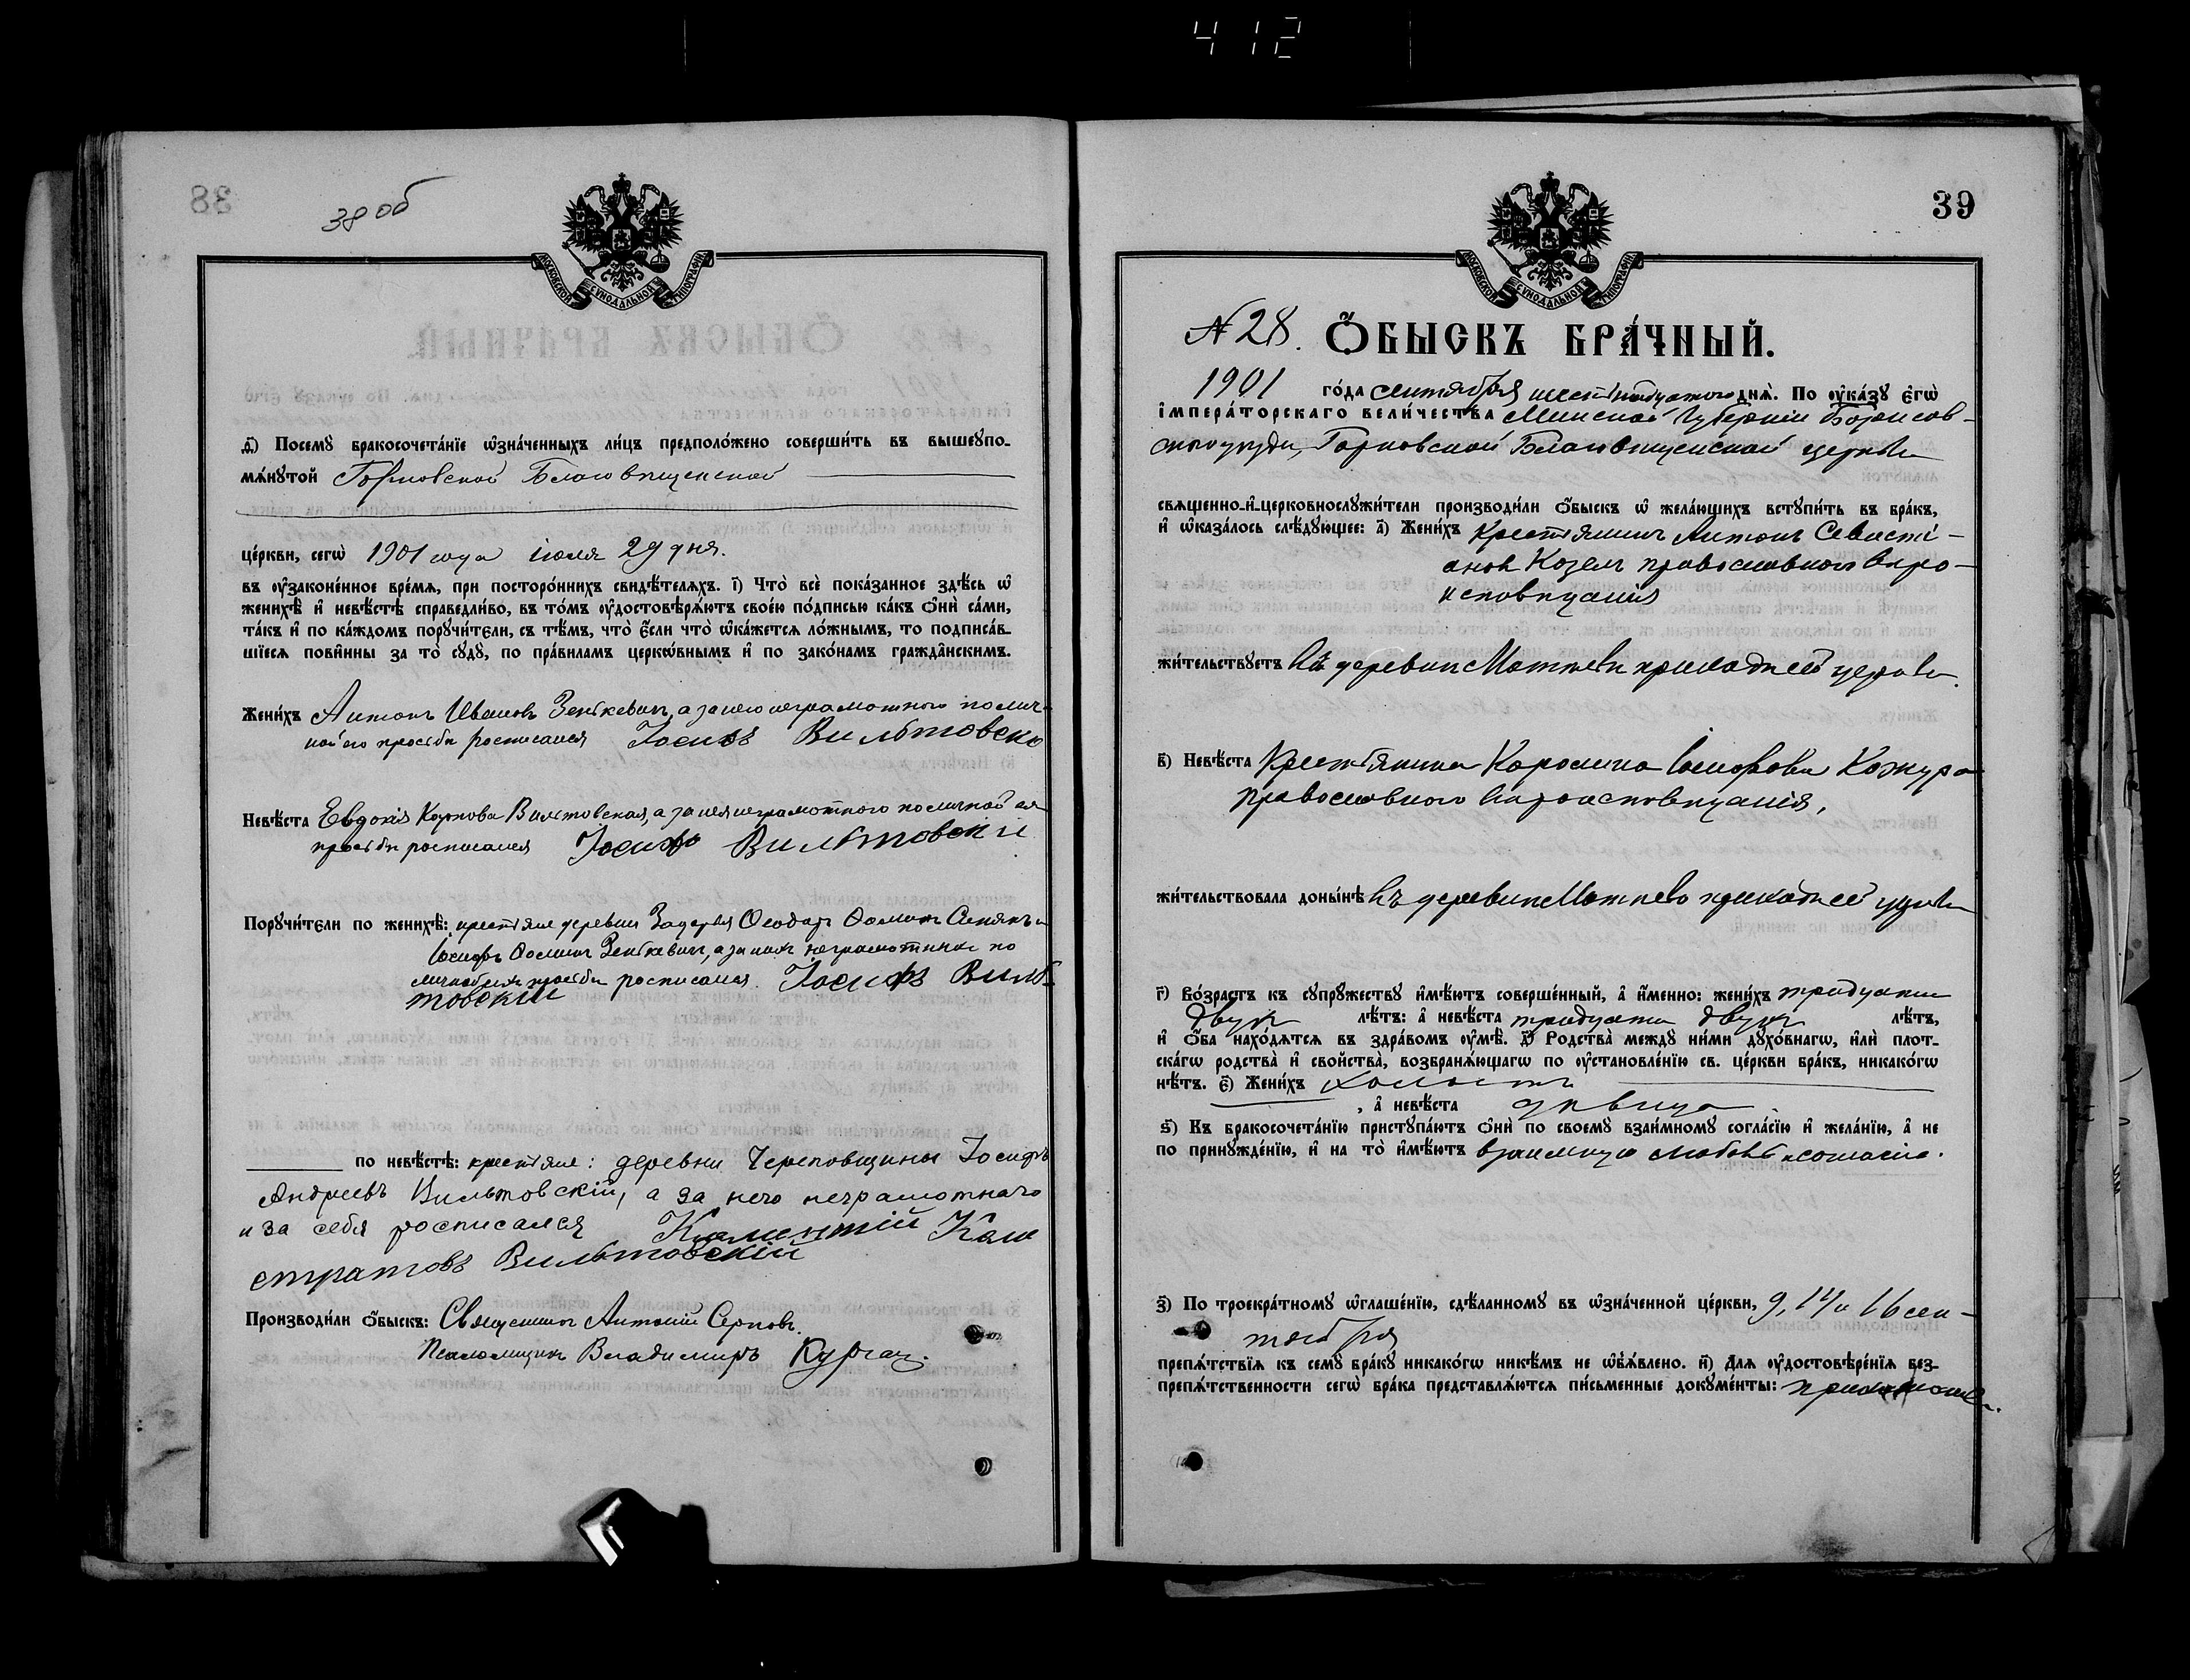 412
38 об
МОСКОВСКОЙ СѴНОДАЛЬНОЙ ТИПОГРАФІИ
д҃і) Посемꙋ бракосочета́нїе ѡ҆зна́ченныхъ ли́цъ предполо́жено соверши́ть въ вышеꙋпо-
мѧ́нꙋтой Горковской Благовѣщенской
це́ркви, сегѡ̀ 1901 года іюля 29 дня.
въ ᲂу҆законе́нное вре́мѧ, при посторо́ннихъ свидѣ́телѧхъ. і҃) Что̀ всѐ пока́занное здѣ́сь ѡ҆
женихѣ̀ и҆ невѣ́стѣ справедли́во, въ то́мъ ᲂу҆достовѣрѧ́ютъ свое́ю по́дписью ка́къ ѻ҆нѝ са́ми,
та́къ и҆ по ка́ждомъ порꙋчи́тели, съ тѣ́мъ, что̀ є҆́сли что̀ ѡ҆ка́жетсѧ ло́жнымъ, то подписа́в-
шїесѧ пови́нны за то̀ сꙋдꙋ̀, по пра́виламъ церкѡ́внымъ и҆ по зако́намъ гражда́нскимъ.
Жени́хъ Антонъ Ивановъ Зенькевичъ, а за него неграмотнаго по лич-
ной его просьбѣ росписался Іосифъ Вильтовскі
Невѣ́ста Евдокія Карпова Вильтовская, а за нея неграмотного по личной ея
просьбѣ росписался Іосифъ Вильтовскій
Порꙋчи́тели по женихѣ̀: крестьяне деревни Ѳеодоръ Ѳоминъ и
Іосифъ Ѳоминъ Зенькевичъ, а за нихъ неграмотныхъ по
личной ихъ просьбѣ росписался Іосифъ Виль-
товскій
по невѣ́стѣ: крестьяне: деревни Череповщины Іосифъ
Андреевъ Вильтовскій, а за него неграмотнаго
и за себя росписался Кали
стратовъ Вильтовскій
Производи́ли ѻ҆́быскъ: Священникъ Антоній Серповъ.
Псаломщикъ Владимиръ Кургач.
39
МОСКОВСКОЙ СѴНОДАЛЬНОЙ ТИПОГРАФІИ
№ 28. Ѻ҆́БЫСКЪ БРА́ЧНЫЙ.
1901 го́да сентября шестнадцатого днѧ̀. По ᲂу҆ка́зꙋ є҆гѡ̀
і҆мпера́торскагѡ вели́чества Минской Губерніи Борисов-
ского уѣзда, Горковской Благовѣщенской церкви
свѧщенно-и҆-церковнослꙋжи́тели производи́ли ѻ҆́быскъ ѡ҆ жела́ющихъ встꙋпи́ть въ бра́къ,
и҆ ѡ҆каза́лось слѣ́дꙋющее: а҃) Жени́хъ Крестьянинъ Антонъ Севасті-
ановъ Козелъ православного вѣро-
исповѣданія
жи́тельствꙋетъ въ деревни Мотнево приходъ сей церкви.
в҃) Невѣ́ста Крестьянка Каролина Іосифова Кожура
православного вѣроисповѣданія,
жи́тельствовала доны́нѣ въ деревни Мотнево приходъ сей церкви
г҃) Во́зрастъ къ сꙋпрꙋ́жествꙋ и҆мѣ́ютъ соверше́нный, а҆ и҆́менно: жени́хъ тридцати
двухъ лѣ́тъ: а҆ невѣ́ста тридцати двухъ лѣ́тъ,
и҆ ѻ҆́ба нахо́дѧтсѧ въ здра́вомъ ᲂу҆мѣ̀. д҃) Родства̀ междꙋ̀ ни́ми дꙋхо́внагѡ, и҆лѝ плот-
ска́гѡ родства̀ и҆ свойства̀, возбранѧ́ющагѡ по ᲂу҆становле́нїю св. це́ркви бра́къ, никако́гѡ
нѣ́тъ. є҃) Жени́хъ холостъ
, а҆ невѣ́ста дѣвица
ѕ҃) Къ бракосочета́нїю пристꙋпа́ютъ ѻ҆нѝ по своемꙋ̀ взаи́мномꙋ согла́сїю и҆ жела́нїю, а҆ не
по принꙋжде́нїю, и҆ на то̀ и҆мѣ́ютъ взаимную любовь и согласіе.
з҃) По троекра́тномꙋ ѡ҆глаше́нїю, сдѣ́ланномꙋ въ ѡ҆зна́ченной це́ркви, 9, 14 и 16 сен-
тября
препѧ́тствїѧ къ семꙋ̀ бра́кꙋ никако́гѡ никѣ́мъ не ѡ҆б̾ѧ́влено. и҃) Длѧ ᲂу҆достовѣре́нїѧ без-
препѧ́тственности сегѡ̀ бра́ка представлѧ́ютсѧ пи́сьменные докꙋме́нты: